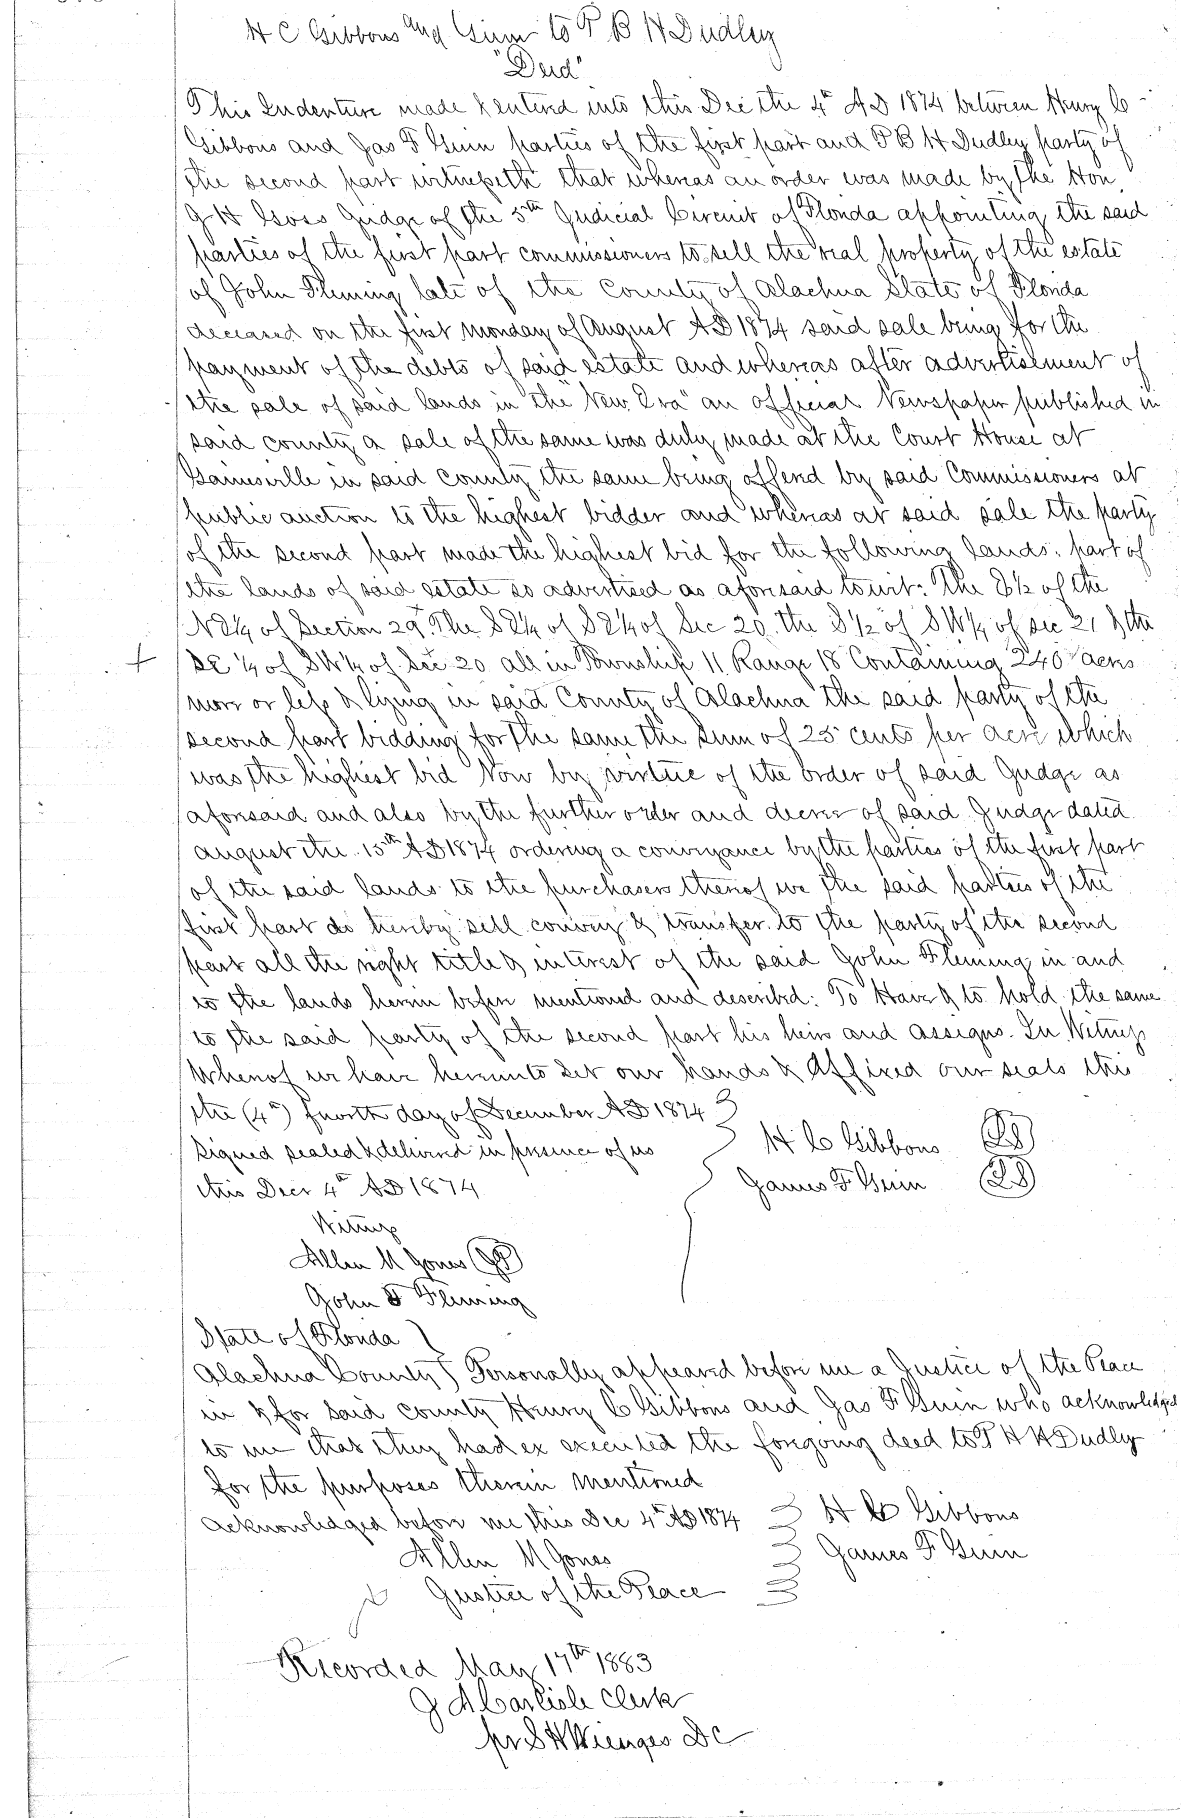 H C Gibbons and Guin to P B H Dudley
"Deed"
This Indenture made & entered into this Dec the 4th AD 1874 between Henry C
Gibbons and Jas F Guin parties of the first part and P B H Dudley party of
the second part witnesseth that whereas an order was made by the Hon
J H Goss Judge of the 5th Judicial Circuit of Florida appointing the said
parties of the first part commissioners to sell the real property of the estate
of John Fleming late of the County of Alachua State of Florida
deceased on the first Monday of August AD 1874 said sale being for the
payment of the debts of said estate and whereas after advertisement of
the sale of said lands in the "New Era" an official Newspaper published in
said county a sale of the same was duly made at the Court House at
Gainesville in said county the same being offered by said Commissioners at
public auction to the highest bidder and whereas at said sale the party
of the second part made the highest bid for the following lands: part of
the lands of said estate so advertised as aforesaid towit: The E½ of the
NE¼ of Section 29. The SE¼ of SE¼ of Sec 20. the S½ of SW¼ of sec 21 & the
SE ¼ of SW¼ of Sec 20 all in Township 11 Range 18 Containing 240 acres
more or less & lying in said County of Alachua the said party of the
second part bidding for the same the sum of 25 cents per acre which
was the highest bid Now by virtue of the order of said Judge as
aforesaid and also by the further order and decree of said Judge dated
August the 15th AD 1874 ordering a conveyance by the parties of the first part
of the said lands to the purchasers thereof we the said parties of the
first part do hereby sell convey & transfer to the party of the second
part all the right title & interest of the said John Fleming in and
to the lands herein before mentioned and described: To Have & to hold the same
to the said party of the second part his heirs and assigns. In Witness
Whereof we have hereunto set our hands & Affixed our seals this
the (4th) fourth day of December AD 1874
Signed sealed & delivered in presence of us
H C Gibbons LS
this Decr 4th AD 1874
James F Guin LS
Witness
Allen M Jones JP
John Fleming
State of Florida
Alachua County Personally appeared before me a Justice of the Peace
in & for said county Henry C Gibbons and Jas F Guin who acknowledged
to me that they had ex executed the foregoing deed to P H H Dudly
for the purposes therein mentioned
Acknowledged before me this Dec 4th AD 1874 H C Gibbons
Allen M Jones James F Guin
Justice of the Peace
Recorded May 17th 1883
J A Carlisle Clerk
pr S H Wienges DC